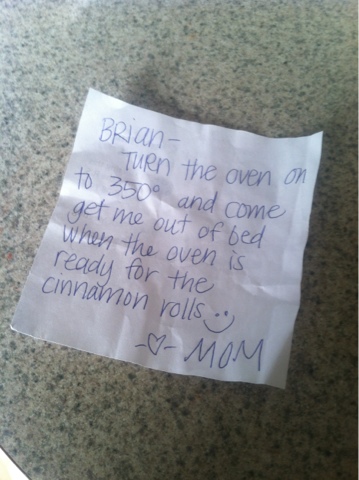 BRian-
TURN the oven on
to 350° and come
get me out of bed
when the oven is
ready for the
cinnamon rolls :)
-♡- MOM